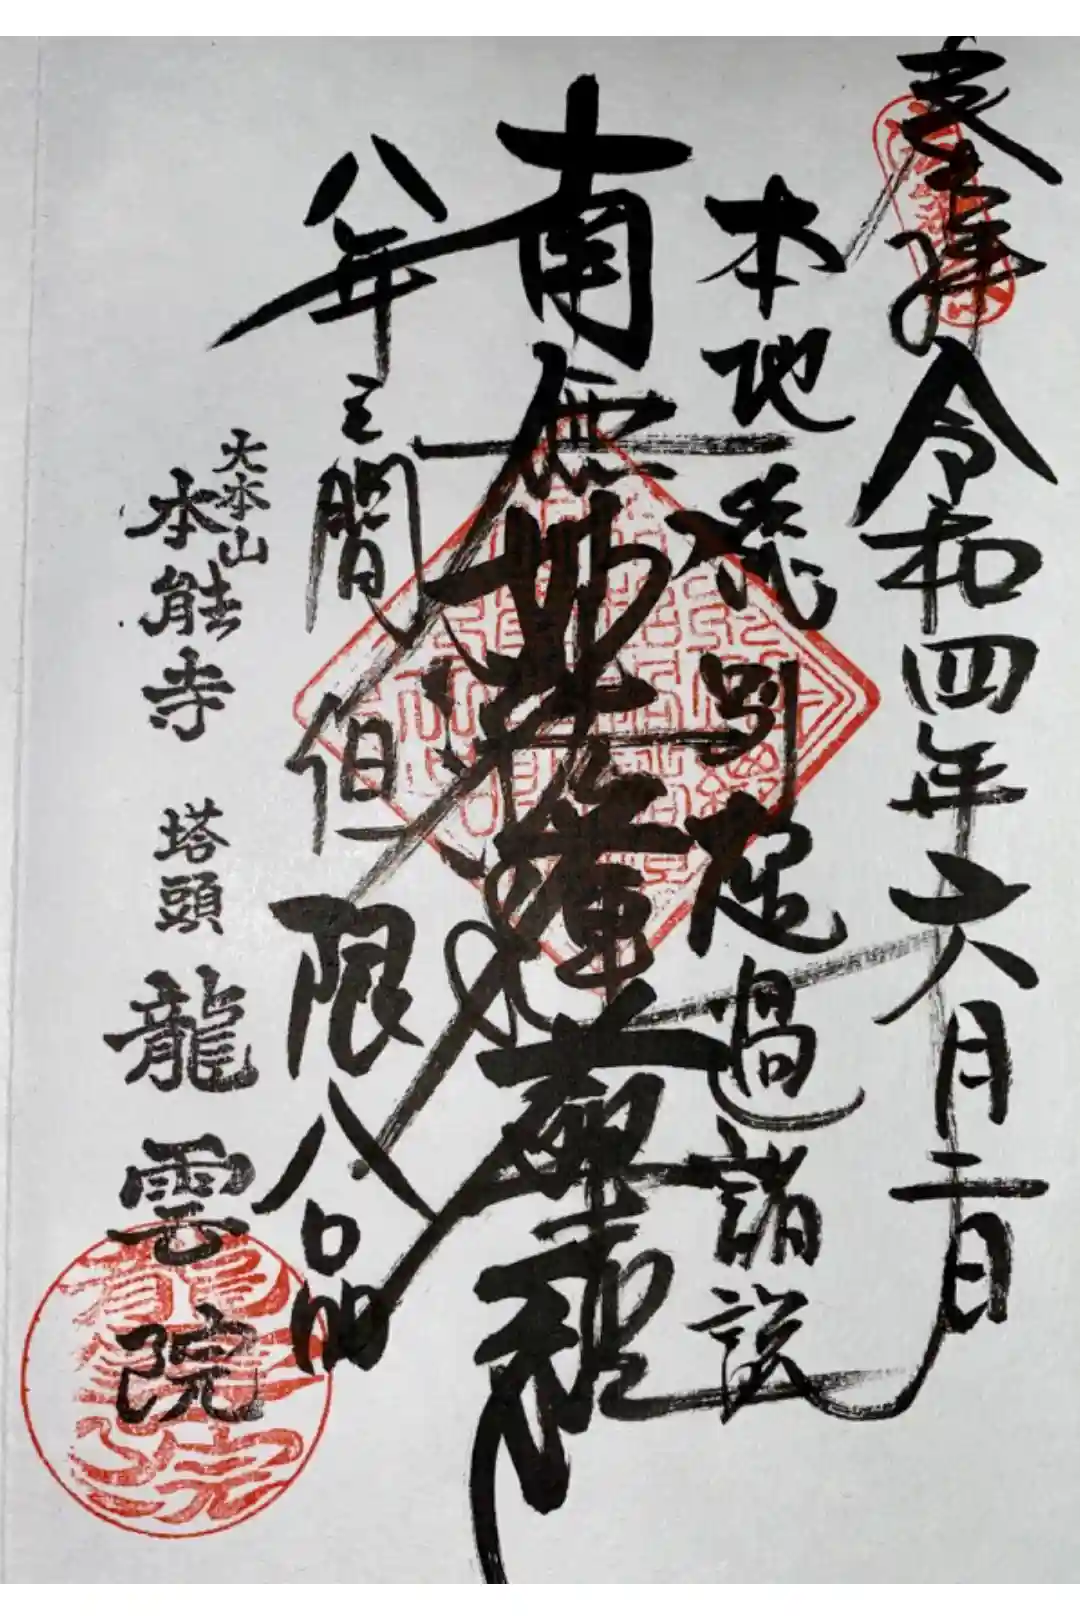 奉拝 令和四年六月二日
本地流 別起過諸説
南無妙法蓮華経
八年之間 但限八品
大本山
本能寺 塔頭 龍雲院